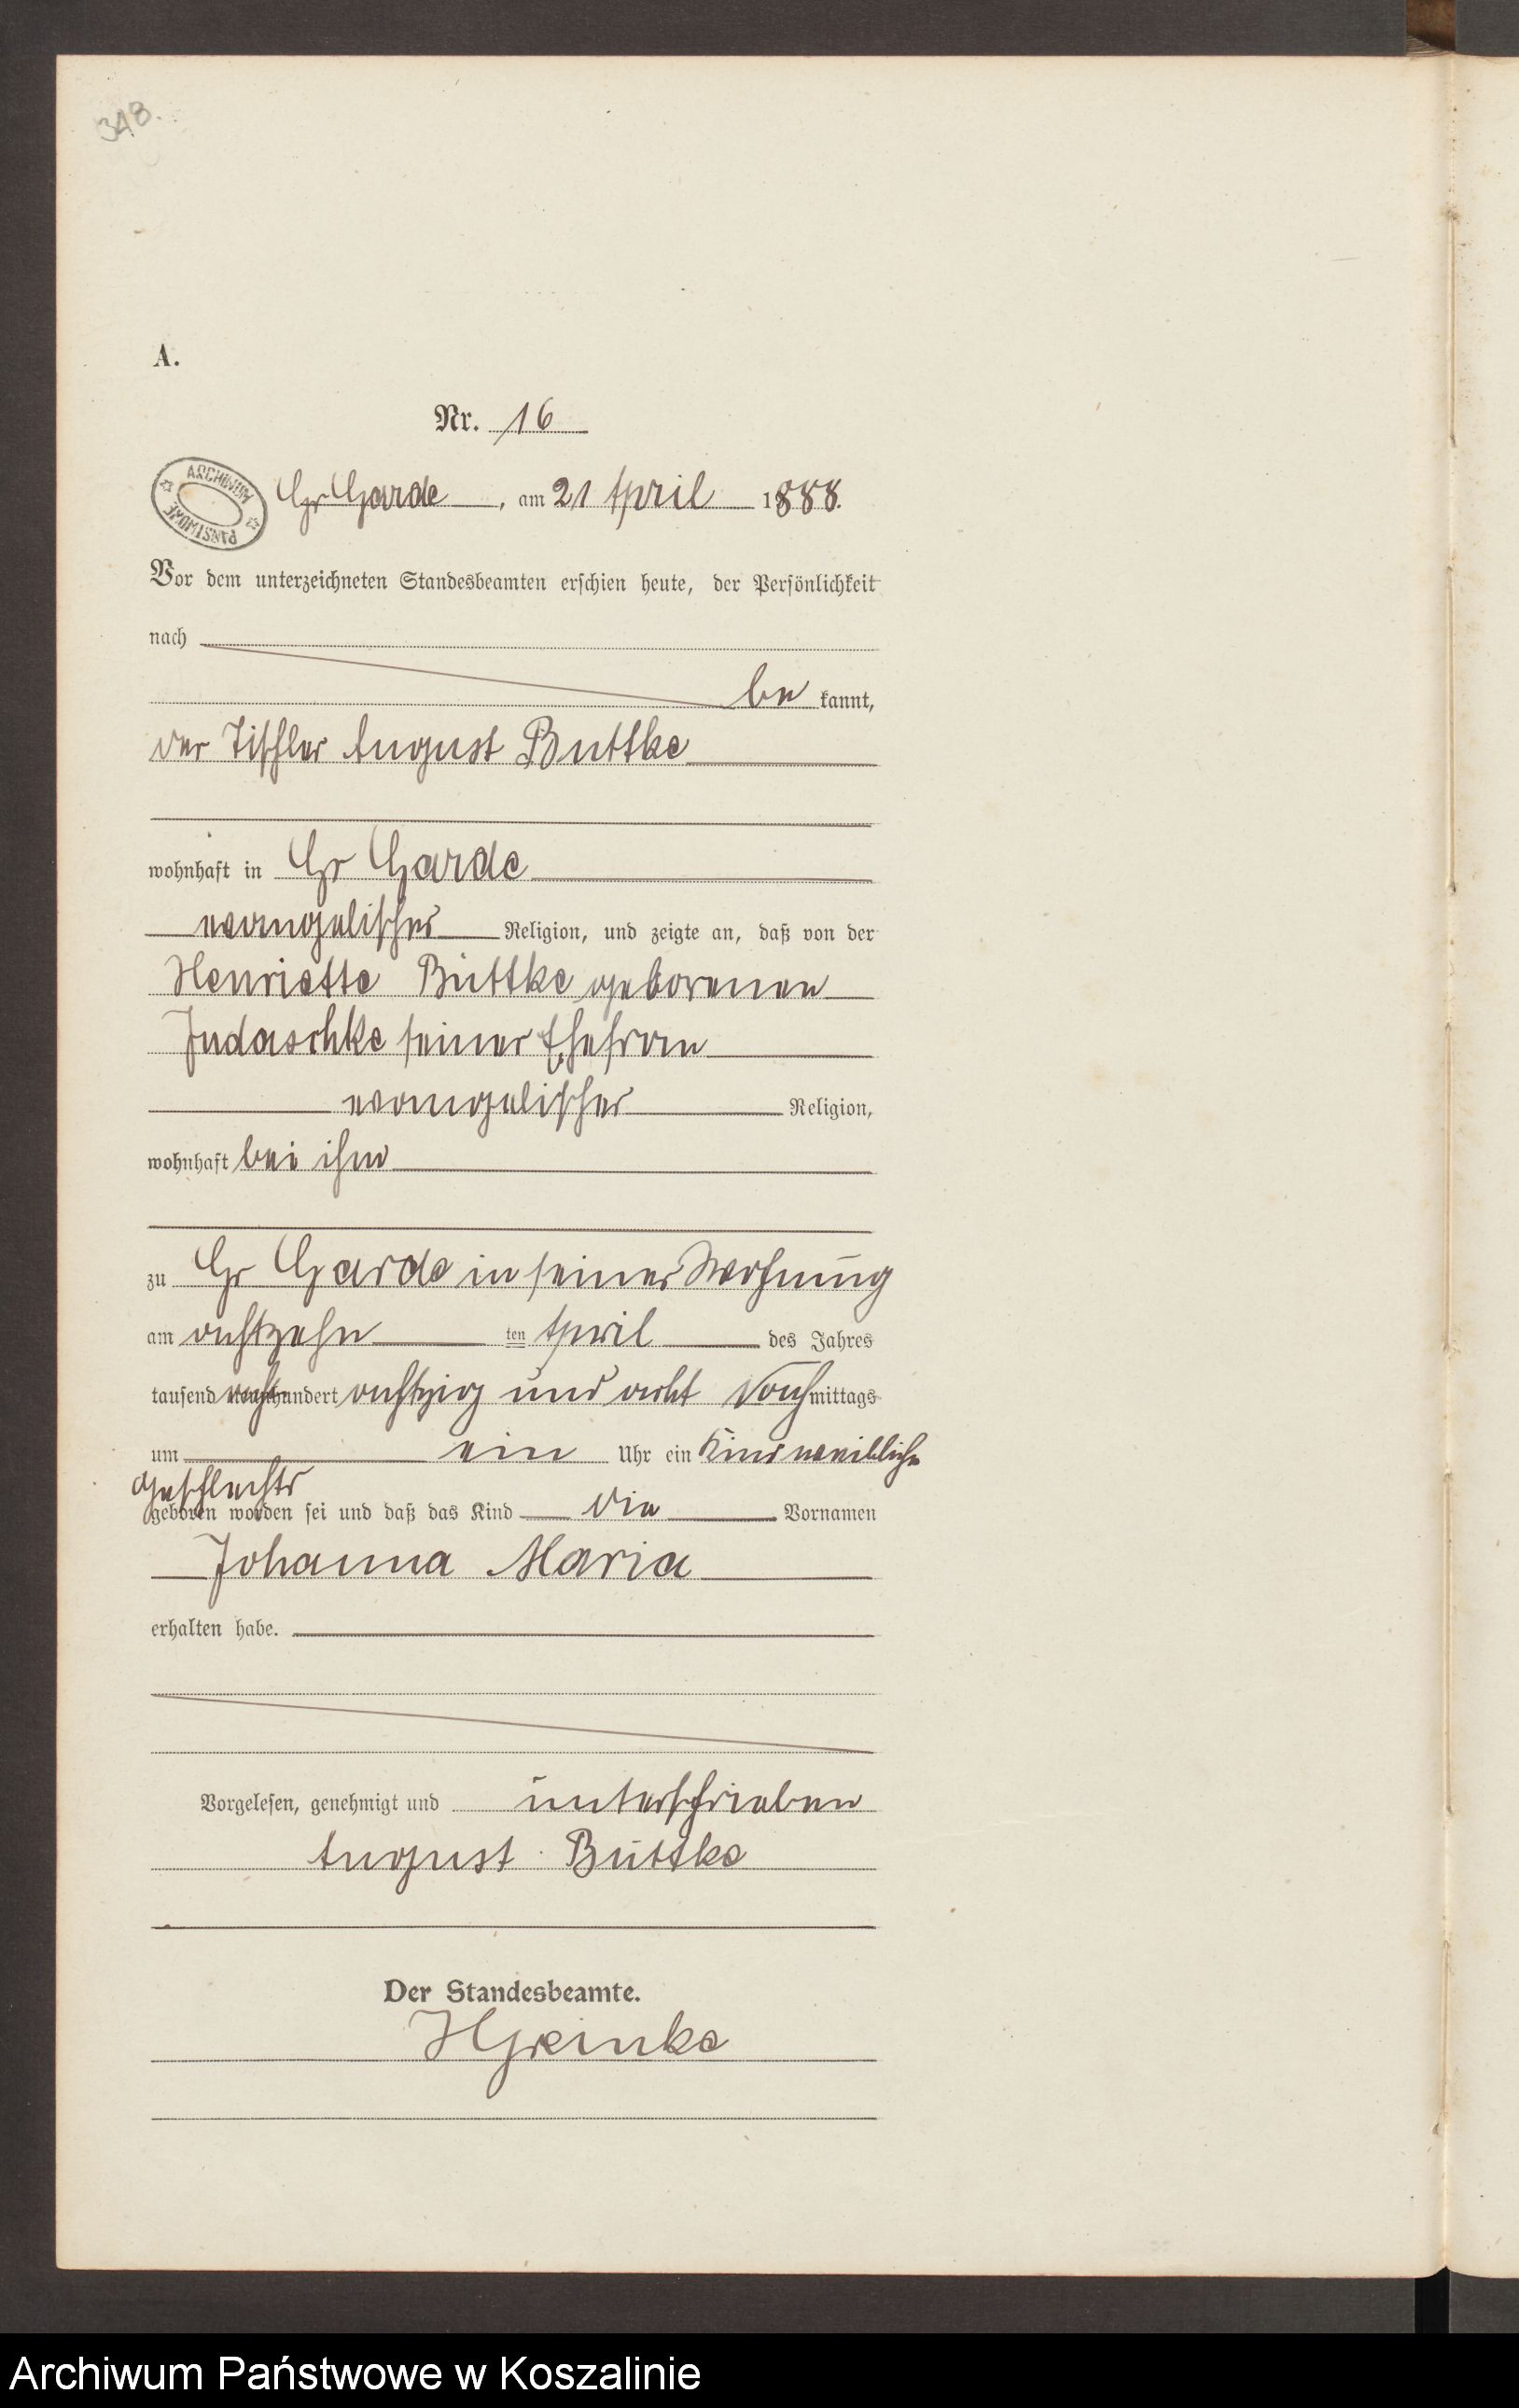 348.
A.
Nr. 16
ARCHIWUM PAŃSTWOWE
Gr Garde, am 21 April 1888.
Vor dem unterzeichneten Standesbeamten erschien heute, der Persönlichkeit
nach
be kannt,
der Tischler August Buttke
wohnhaft in Gr Garde
evangelischer Religion, und zeigte an, daß von der
Henriette Buttke geborenen
Judaschke seiner Ehefrau
evangelischer Religion,
wohnhaft bei ihm
zu Gr Garde in seiner Wohnung
am achtzehn ten April des Jahres
tausend acht hundert achtzig und acht Nachmittags
um ein Uhr ein Kind weiblichen
Geschlechts
geboren worden sei und daß das Kind die Vornamen
Johanna Maria
erhalten habe.
Vorgelesen, genehmigt und unterschrieben
August Buttke
Der Standesbeamte.
Archiwum Państwowe w Koszalinie